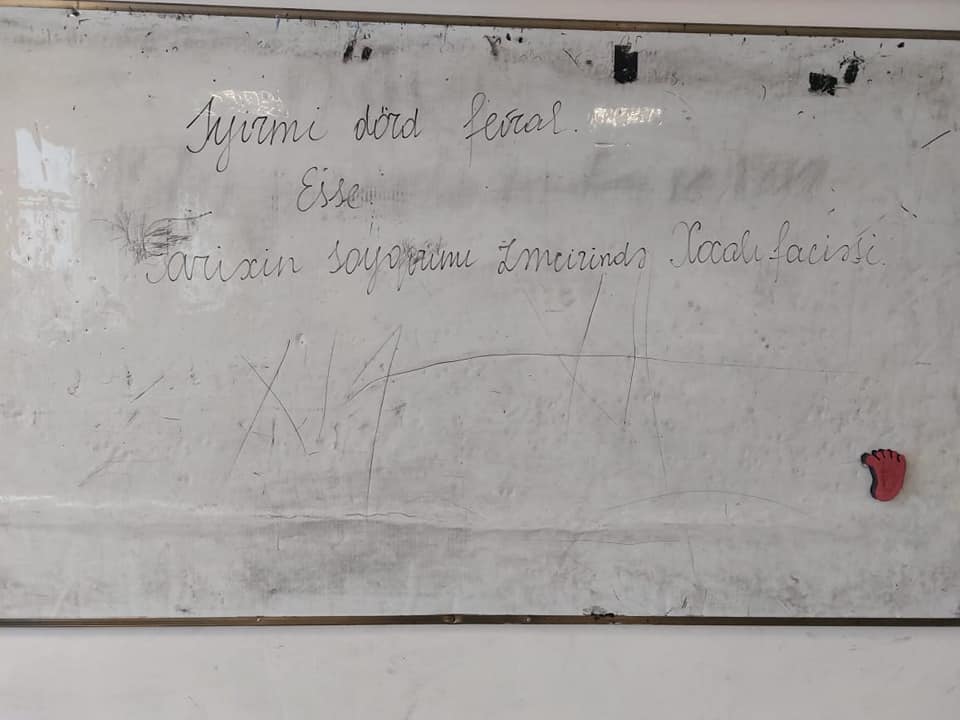 Iyirmi dörd fevral.
Esse
Tarixin soyqırımı zəncirində Xocalı faciəsi.